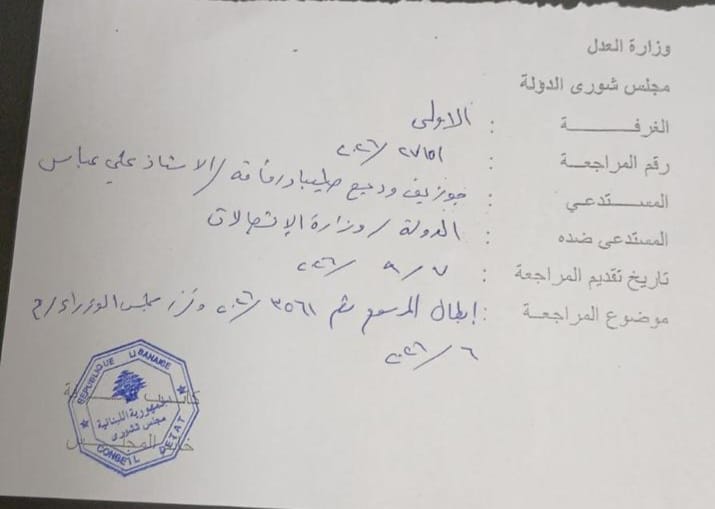 وزارة العدل
مجلس شورى الدولة
الغرفــــــــة : الاولى
رقم المراجعــة : ٢٠٢٦/٢٧١٥١
المستـــدعـي : جوزيف وديع / الاستاذ علي عباس
المستدعى ضده : الدولة / وزارة الإتصالات
تاريخ تقديم المراجعة : ٧ / ٨ / ٢٠٢٦
موضوع المراجعــة : إبطال المرسوم رقم ٣٥٦١ / ٢٠٢٦ وقرار مجلس الوزراء /
٦ / ٢٠٢٦
REPUBLIQUE LIBANAISE
الجمهورية اللبنانية
مجلس شورى
CONSEIL D'ETAT